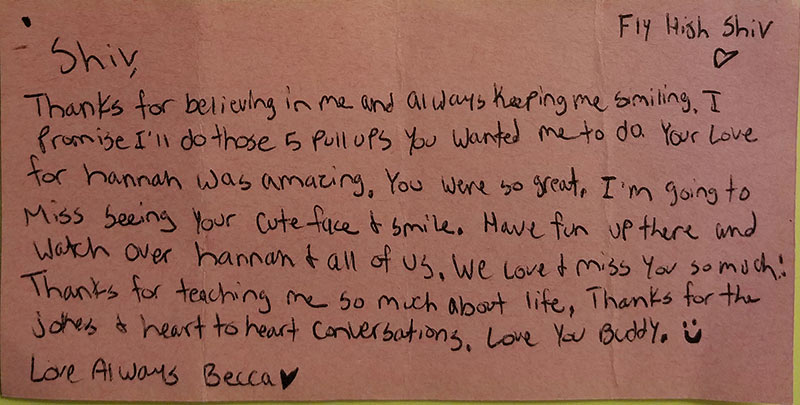 Fly High Shiv
♡
Shiv,
Thanks for believing in me and always keeping me smiling. I
promise I'll do those 5 pull ups you wanted me to do. Your love
for hannah was amazing. You were so great. I'm going to
miss seeing your cute face & smile. Have fun up there and
watch over hannah & all of us. We love & miss you so much!
Thanks for teaching me so much about life, Thanks for the
jokes & heart to heart conversations. Love You Buddy. :)
Love Always Becca♥